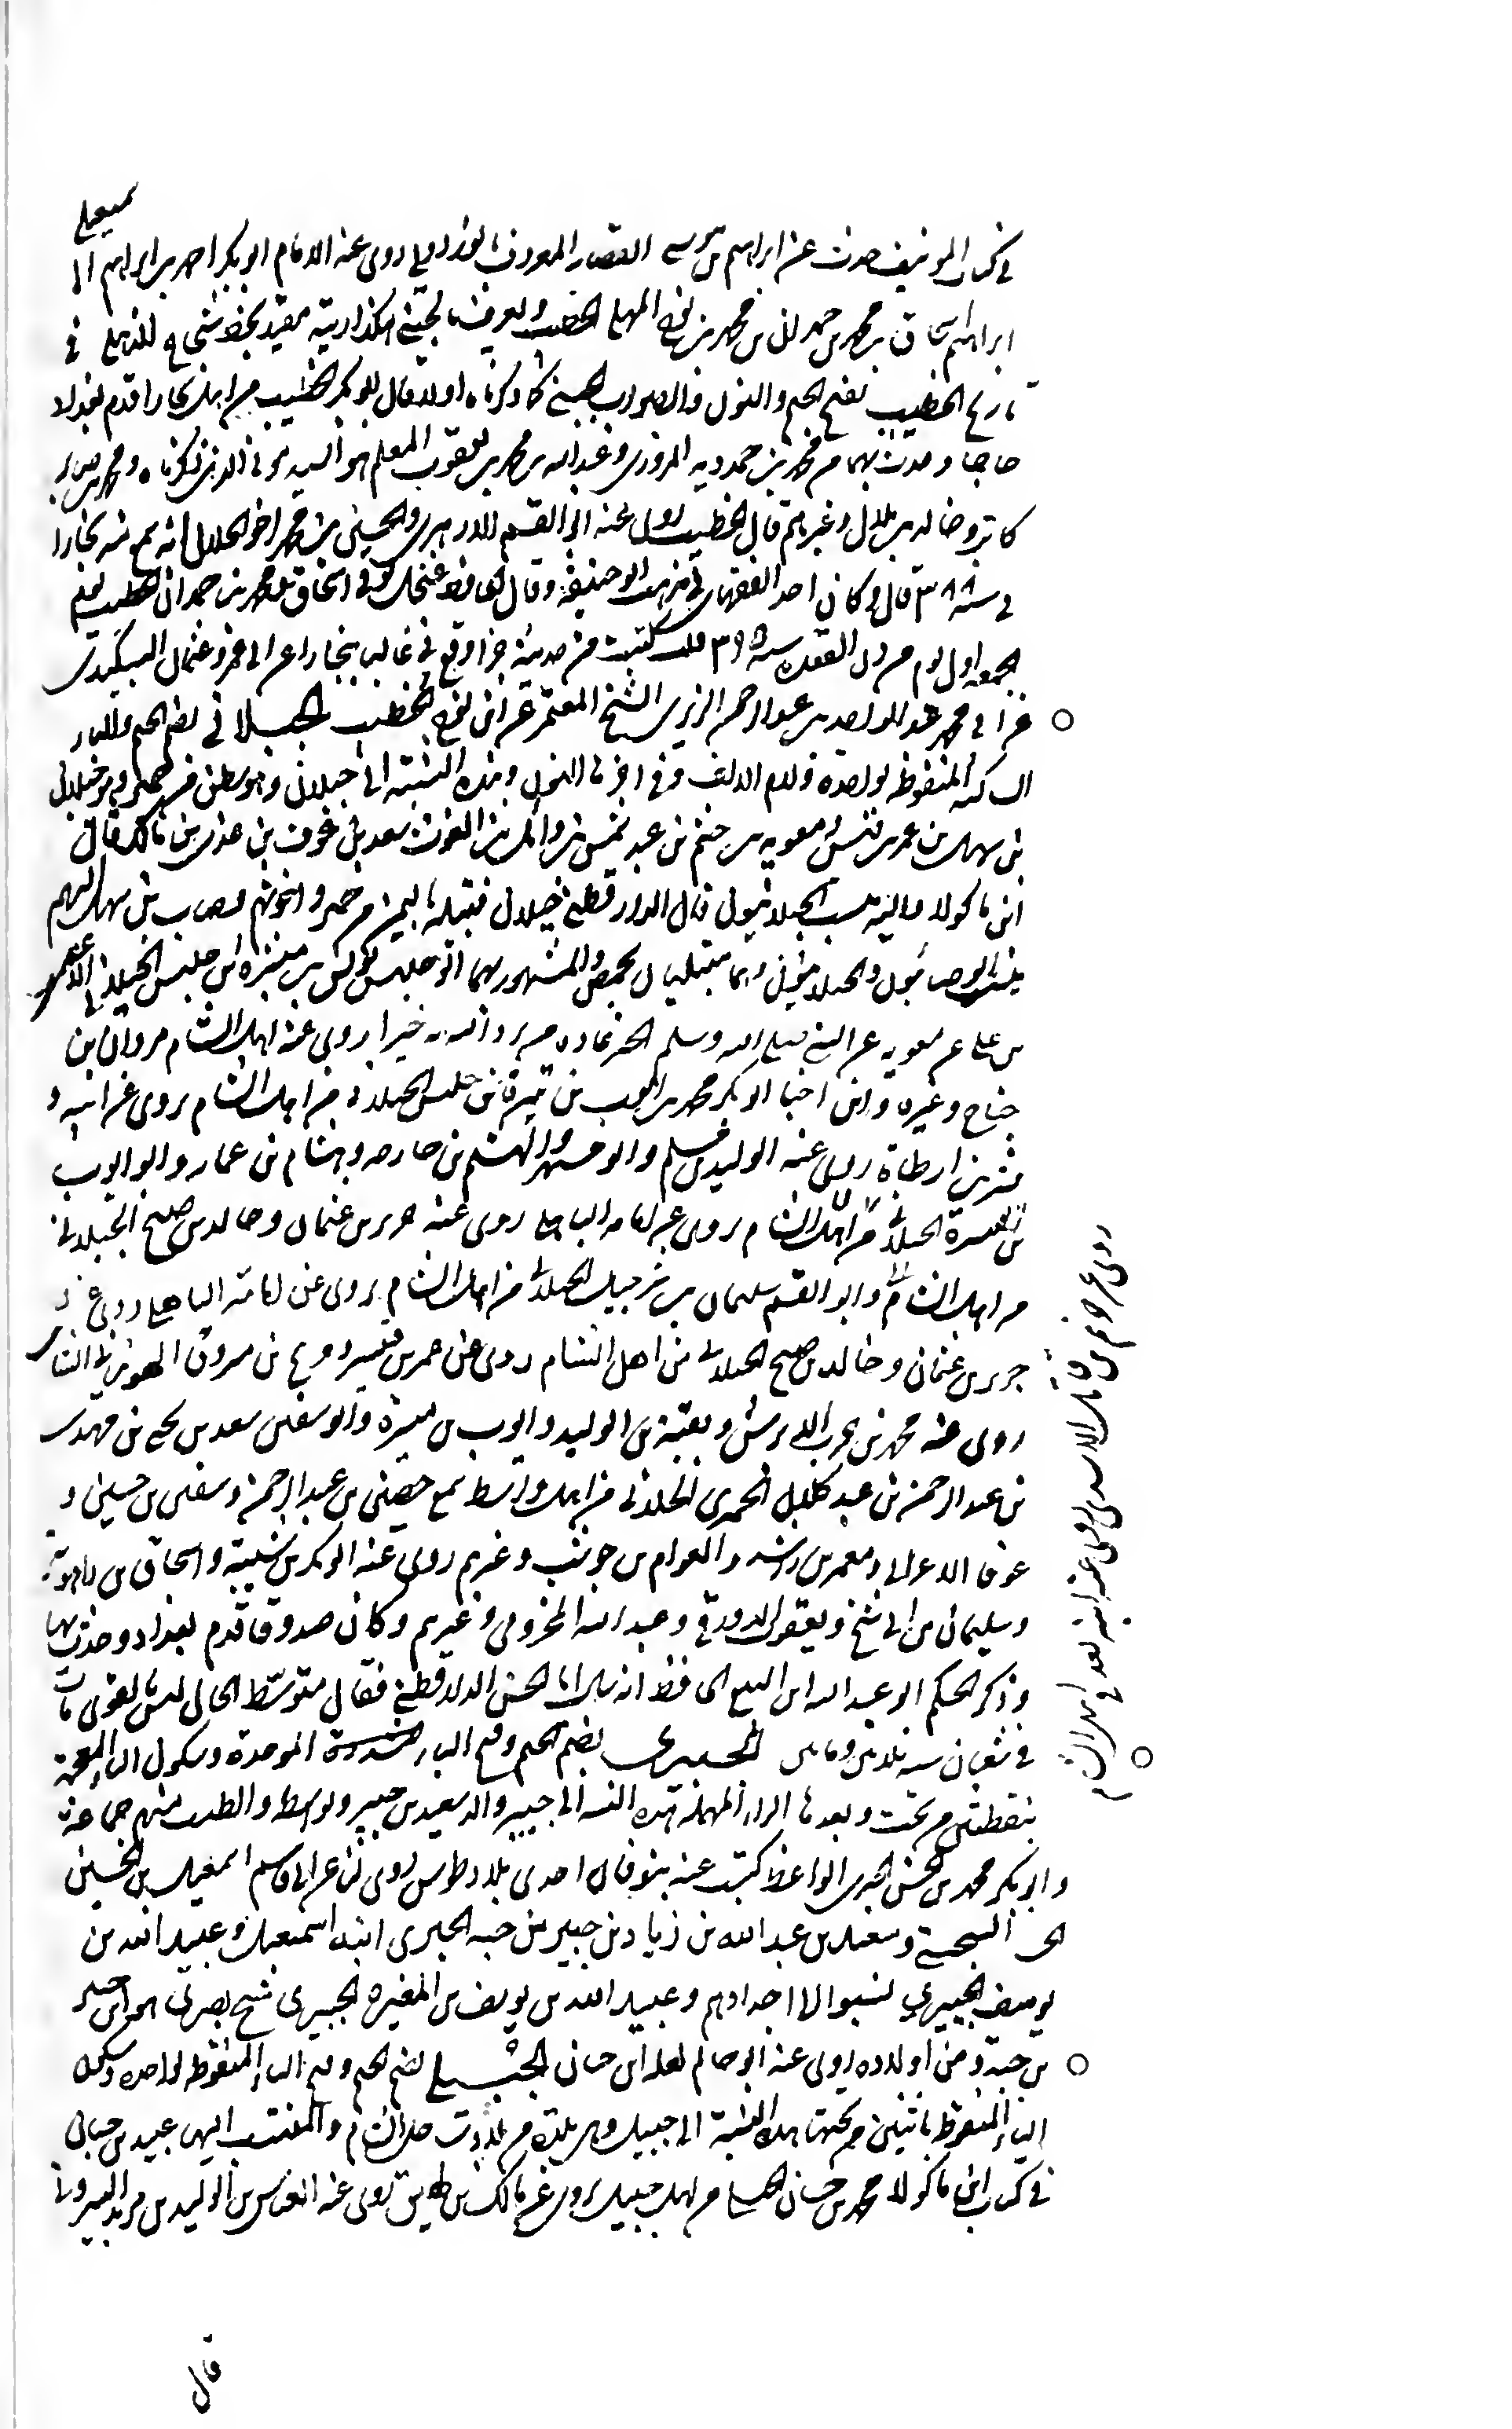 في كتاب المؤتلف حدث عن ابراهيم بن موسى القصار المعروف بالوزدولي روى عنه الامام ابو بكر احمد بن ابراهيم الا
سمعيلي
ابو ابراهيم اسحاق بن محمد بن حمدان بن محمد بن نوح المهلبي الخطيب ويعرف بالجبني هكذا رايته مقيد بخط شجاع الذهلي في
تاريخ الخطيب بفتح الجيم والنون والصواب الجبني كما ذكرناه اولا قال ابو بكر الخطيب من اهل بخارا قدم بغداد
حاجا وحدث بها عن محمد بن حمدويه المروزي وعبد الله بن محمد بن يعقوب المعلم هو السيدموني الذي ذكرناه ومحمد بن صابر بن
كاتب وخالد بن بلال وغيرهم قال الخطيب روى عنه ابو القسم الازهري والحسين بن محمد اخو الخلال انه سمع منه ببخارا
في سنة ٣٨٨ قال وكان احد الفقهاء في مذهب ابو حنيفة وقال الحافظ غنجار توفي اسحاق بن محمد بن حمدان الخطيب يوم
الجمعة اول يوم من ذي القعدة سنة ٣٩٥ قلت كتبت من حديثه جزا وقع في غالب ببخارا عن ابي عمرو عثمان البيكندي
عن ابي محمد عبد الواحد بن عبد الرحمن الزبيري الشيخ المعمر عن ابن نوح الخطيب الجبلاني بضم الجيم والباء
الساكنة المنقوطة بواحدة ولام الالف وفي اخرها النون وهذه النسبة الى جبلان وهو بطن من حمير وهو جبلان
بن سهل بن عمرو بن قيس بن معوية بن جشم بن عبد شمس بن وائل بن الغوث بن سعد بن عوف بن عدي بن مالك قال
ابن ماكولا واليه ينسب الجبلانيون قال الدارقطني جبلان قبيلة باليمن من حمير واخوتهم وصاب بن سهل اليهم
ينسب الوصابيون والجبلانيون وهما قبيلتان بحمص والمشهور بهما ابو حلبس يونس بن ميسرة بن حلبس الجبلاني الاعمى
من على عن معوية عن النبي صلى الله وسلم الخير عادة من يرد الله به خيرا روى عنه اهل الشام مروان بن
جناح وغيره وابن اخيه ابو بكر محمد بن ايوب بن ميسرة بن حلبس الجبلاني من اهل الشام يروي عن ابيه و
بسر بن ارطاة روى عنه الوليد بن مسلم وابو مسهر والهيثم بن خارجة وهشام بن عمار وابو ايوب
بن ميسرة الجبلاني من اهل الشام يروي عن ابي امامة الباهلي روى عنه حريز بن عثمان وخالد بن صبيح الجبلاني
من اهل الشام وابو القسم سليمان بن شرحبيل الجبلاني من اهل الشام يروي عن ابي امامة الباهلي روى عنه
حريز بن عثمان وخالد بن صبيح الجبلاني من اهل الشام روى عن عمر بن قيس وربيع بن مسروق الهوزني الشامي
روى عنه محمد بن حرب الابرش وبقية بن الوليد وايوب بن ميسرة وابو سفين سعد بن يحيى بن مهدي
بن عبد الرحمن بن عبد كلال الحميري الجبلاني من اهل واسط سمع حصين بن عبد الرحمن وسفين بن حسين و
عوف الاعرابي ومعمر بن راشد والعوام بن حوشب وغيرهم روى عنه ابو بكر بن شيبة واسحاق بن راهويه
وسليمان بن ابي شيخ ويعقوب الدورقي وعبد الله المخرومي وغيرهم وكان صدوقا قدم بغداد وحدث بها
وذكر الحكم ابو عبد الله ابن البيع الحافظ انه سال ابا الحسن الدارقطني فقال متوسط الحال ليس بالقوي مات
في شعبان سنة الجبيري بضم الجيم وفتح الباء الموحدة وسكون الياء المعجمة
بنقطتين من تحت وبعدها الراء المهملة هذه النسبة الى جبير والد سعيد بن جبير ولواسط والطلب منهم جماعة
وابو بكر محمد بن الحسن الجبيري الواعظ كتبت عنه بنوقان احدى بلاد طوس روى لنا عن ابي قاسم اسمعيل بن الحسين
السنجبستي وسعيد بن عبد الله بن زياد بن جبير بن حية الجبيري ابنه اسمعيل وعبيد الله بن
يوسف الجبيري نسبوا الا اجدادهم وعبيد الله بن يوسف بن المغيرة الجبيري شيخ بصري هو ابن جبير
بن حية ومن اولاده روى عنه ابو حاتم لعله ابن حبان الجبيلي بضم الجيم وفتح الباء المنقوطة بواحدة وسكون
الياء المنقوط باثنين من تحتها هذه النسبة الى جبيل وهي بلدة من بلاد ساحل الشام والمنتسب اليها عبيد بن حبان
في كتاب ابن ماكولا محمد بن حسان الجبيلي من اهل جبيل يروي عن مالك بن روى عنه العباس بن الوليد بن مزيد البيروتي
روى عن خريم بن فاتك الاسدي روى عنه ابنه يعد في اهل الشام
قال